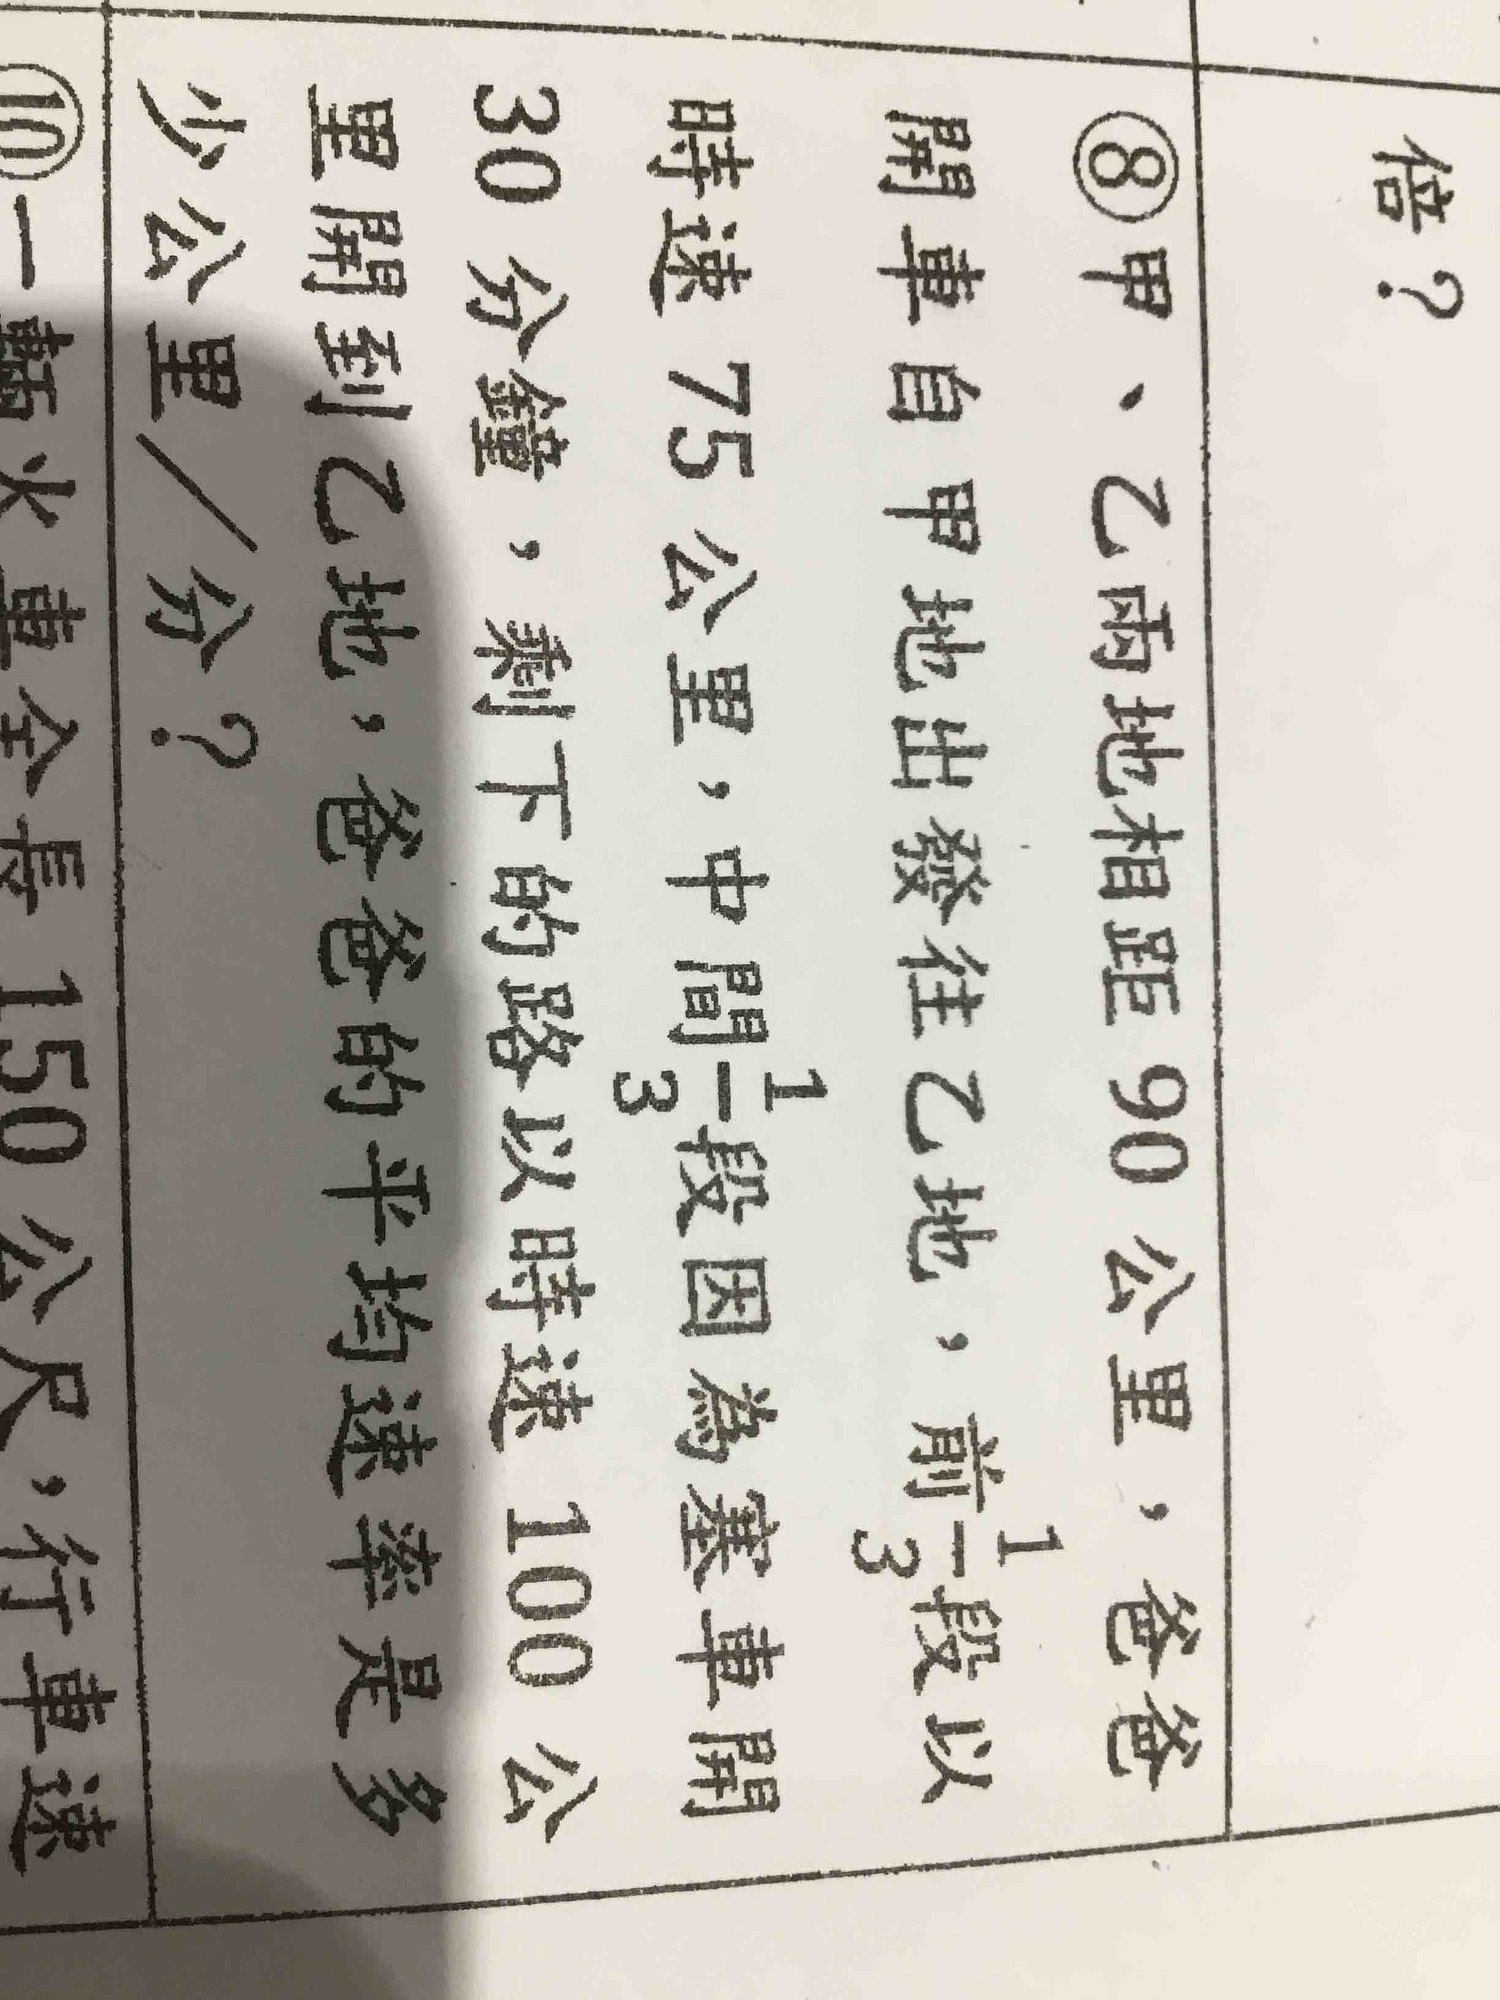 倍？
⑧甲、乙兩地相距 90 公里，爸爸
開車自甲地出發往乙地，前1/3段以
時速 75 公里，中間1/3段因為塞車開
30 分鐘，剩下的路以時速 100 公
里開到乙地，爸爸的平均速率是多
少公里／分？
⑩一輛火車全長 150 公尺，行車速